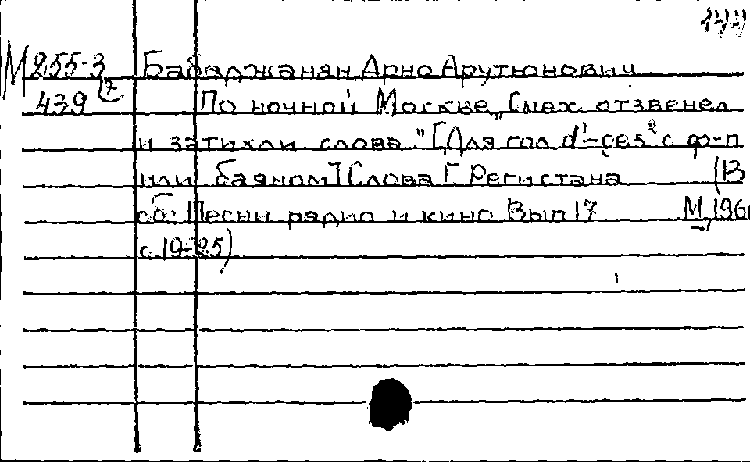 М 255-3 Бабаджанян Арно Арутюнович
439 По ночной Москве „Смех отзвенел
и затихли слова." [Для гол d¹-ces² с ф-п
или баяном] Слова Г. Регистана (В
сб: Песни радио и кино Вып 17 М, 196
с. 19-25)